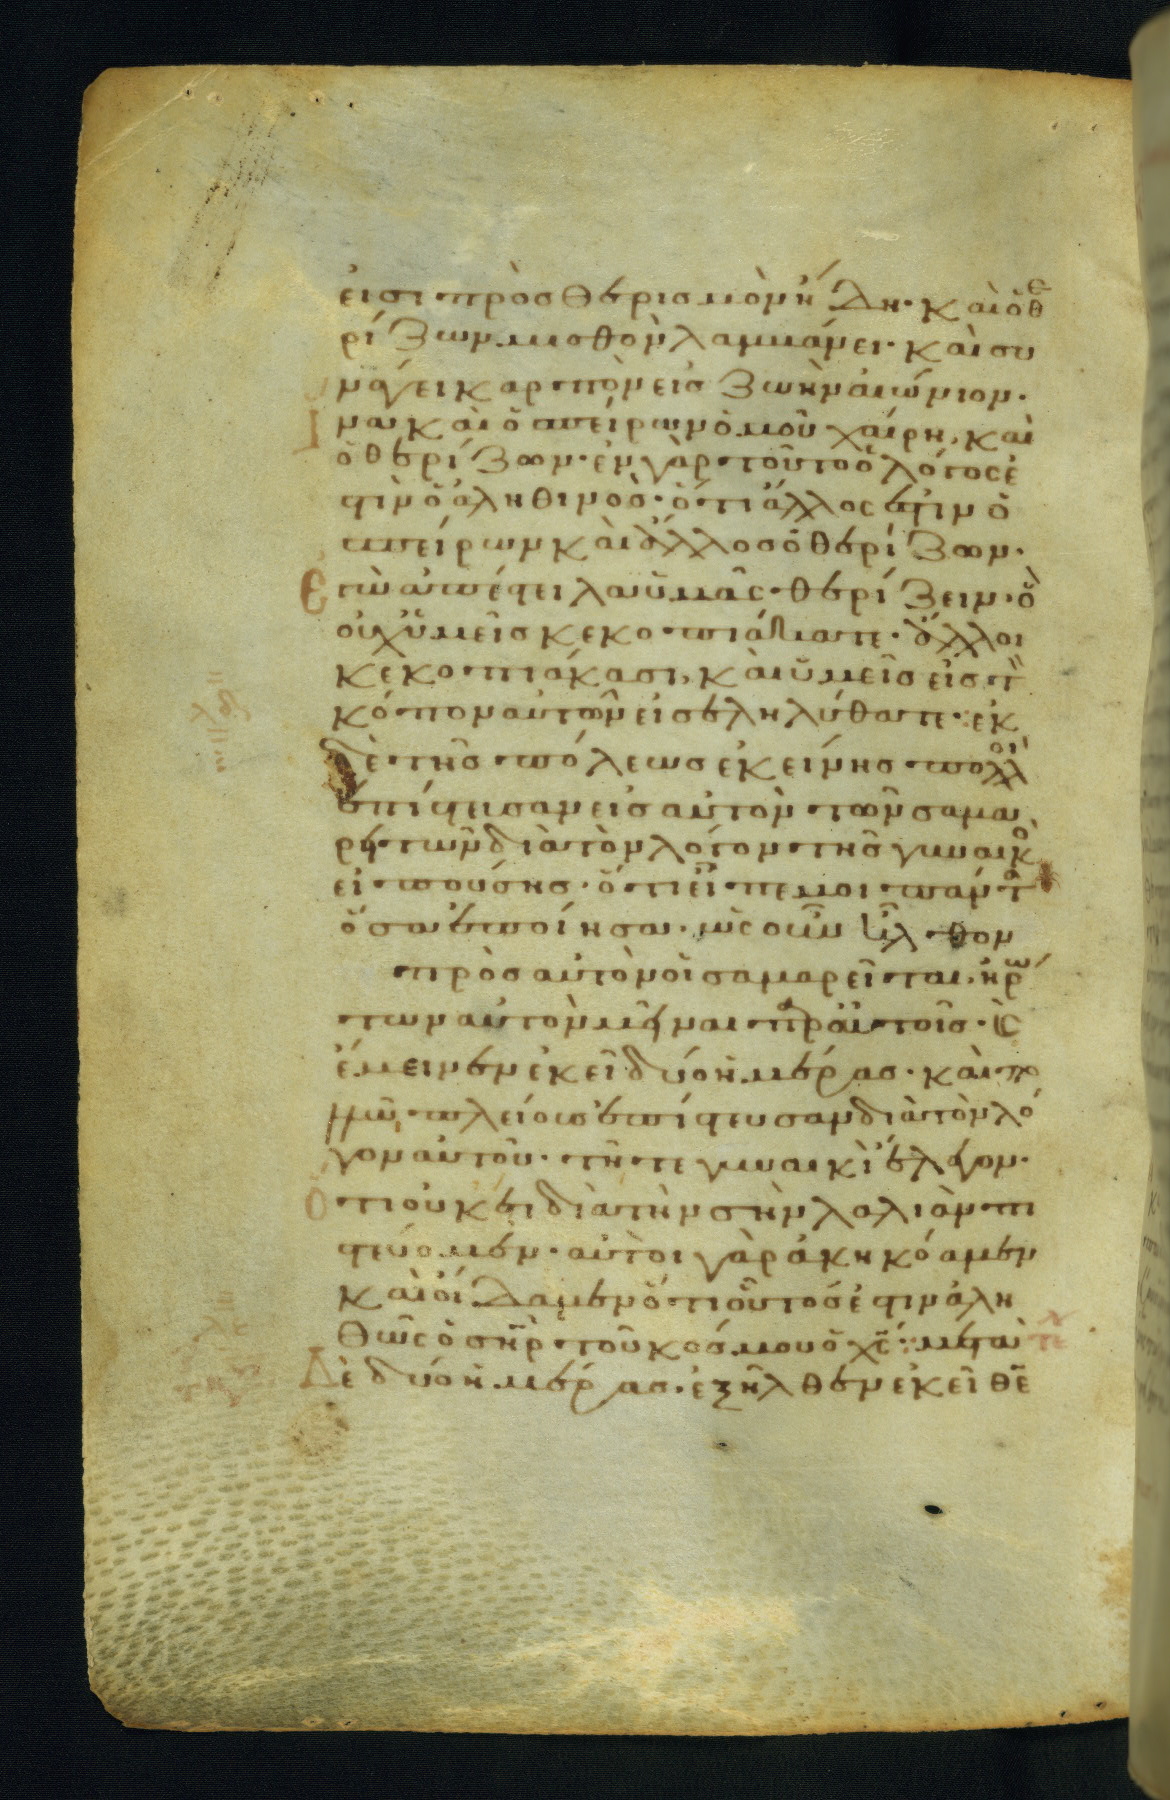 εισι πρὸσ θερισμὸν ἤδη· καὶ ὁ θε
ρίζων μισθὸν λαμμάνει· καὶ συ
νάγει καρπὸν εἰσ ζωὴν αἰώνιον·
ἵνα καὶ ὁ σπείρων ὁμοῦ χαίρη, καὶ
ὁ θερίζων· ἐν γὰρ τούτο ὁ λόγος ἐ
στὶν ὁ ἀληθινοσ· ὅτι ἄλλος ἐστὶν ὁ
σπείρων καὶ ἄλλοσ ὁ θερίζων·
Ἐγὼ ἀπέστειλα ὑμᾶς θερίζειν· ὃ
οὐχ ὑμεῖσ κεκοπιάκατε· ἄλλοι
κεκοπιάκασι, καὶ ὑμεῖσ εἰσ τὸν
κόπον αὐτῶν εἰσεληλύθατε· ἐκ
δὲ τῆσ πόλεωσ ἐκείνησ πολλοὶ
ἐπίστεισαν εἰσ αὐτὸν τῶν σαμα
ρητῶν διὰ τὸν λόγον τῆσ γυναικὸ
εἰπούσησ· ὅτι εἶπε μοι πάντα
ὅσα ἐποίησα· ὡς οὖν ἦλθον
πρὸσ αὐτὸν οἱ σαμαρεῖται, ἠρώ
των αὐτὸν μεῖναι παρ' αὐτοῖσ· καὶ
ἔμεινεν ἐκεῖ δύο ἡμέρασ· καὶ πο
λλῶ πλείουσ ἐπίστευσαν διὰ τὸν λό
γον αὐτοῦ· τῆ τε γυναικὶ ἔλεγον·
Ὅτι οὐκέτι διὰ τὴν σὴν λαλιὰν πι
στεύομεν· αὐτοὶ γὰρ ἀκηκόαμεν
καὶ οἴδαμεν ὅτι οὗτοσ ἐστιν ἀλη
θῶς ὁ σηρ τοῦ κόσμου ὁ χσ: μετὰ
Δὲ δύο ἡμέρασ· ἐξῆλθεν ἐκεῖθεν